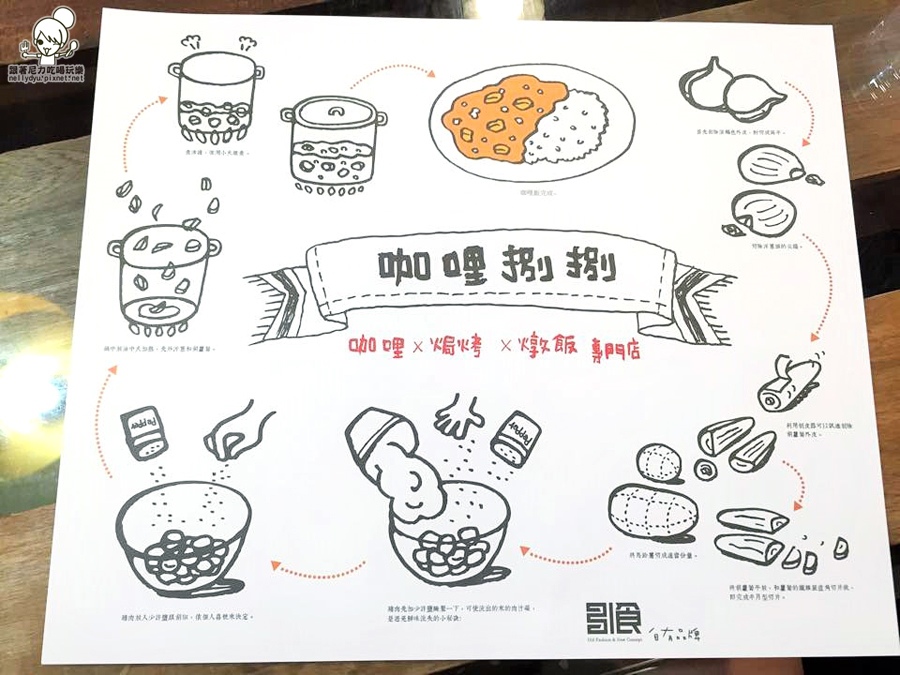 跟著尼力吃喝玩樂
nellydyu.pixnet.net
煮沸後，改用小火燉煮。
咖哩飯完成。
首先去除深褐色外皮，對切成兩半。
切除洋蔥頭的尖端。
咖哩捌捌
咖哩×焗烤×燉飯 專門店
鍋中放油中火加熱，先炒洋蔥和胡蘿蔔。
利用削皮器可以跳進削除
胡蘿蔔外皮。
pepper
pepper
將馬鈴薯切成適當份量。
將胡蘿蔔平放，和蘿蔔的纖維呈直角切片後，
即完成半月型切片。
豬肉放入少許鹽跟胡椒，依個人喜好來決定。
豬肉先加少許鹽醃製一下，可使流出的來的肉汁減，
是避免鮮味流失的小秘訣!
引食
自有品牌